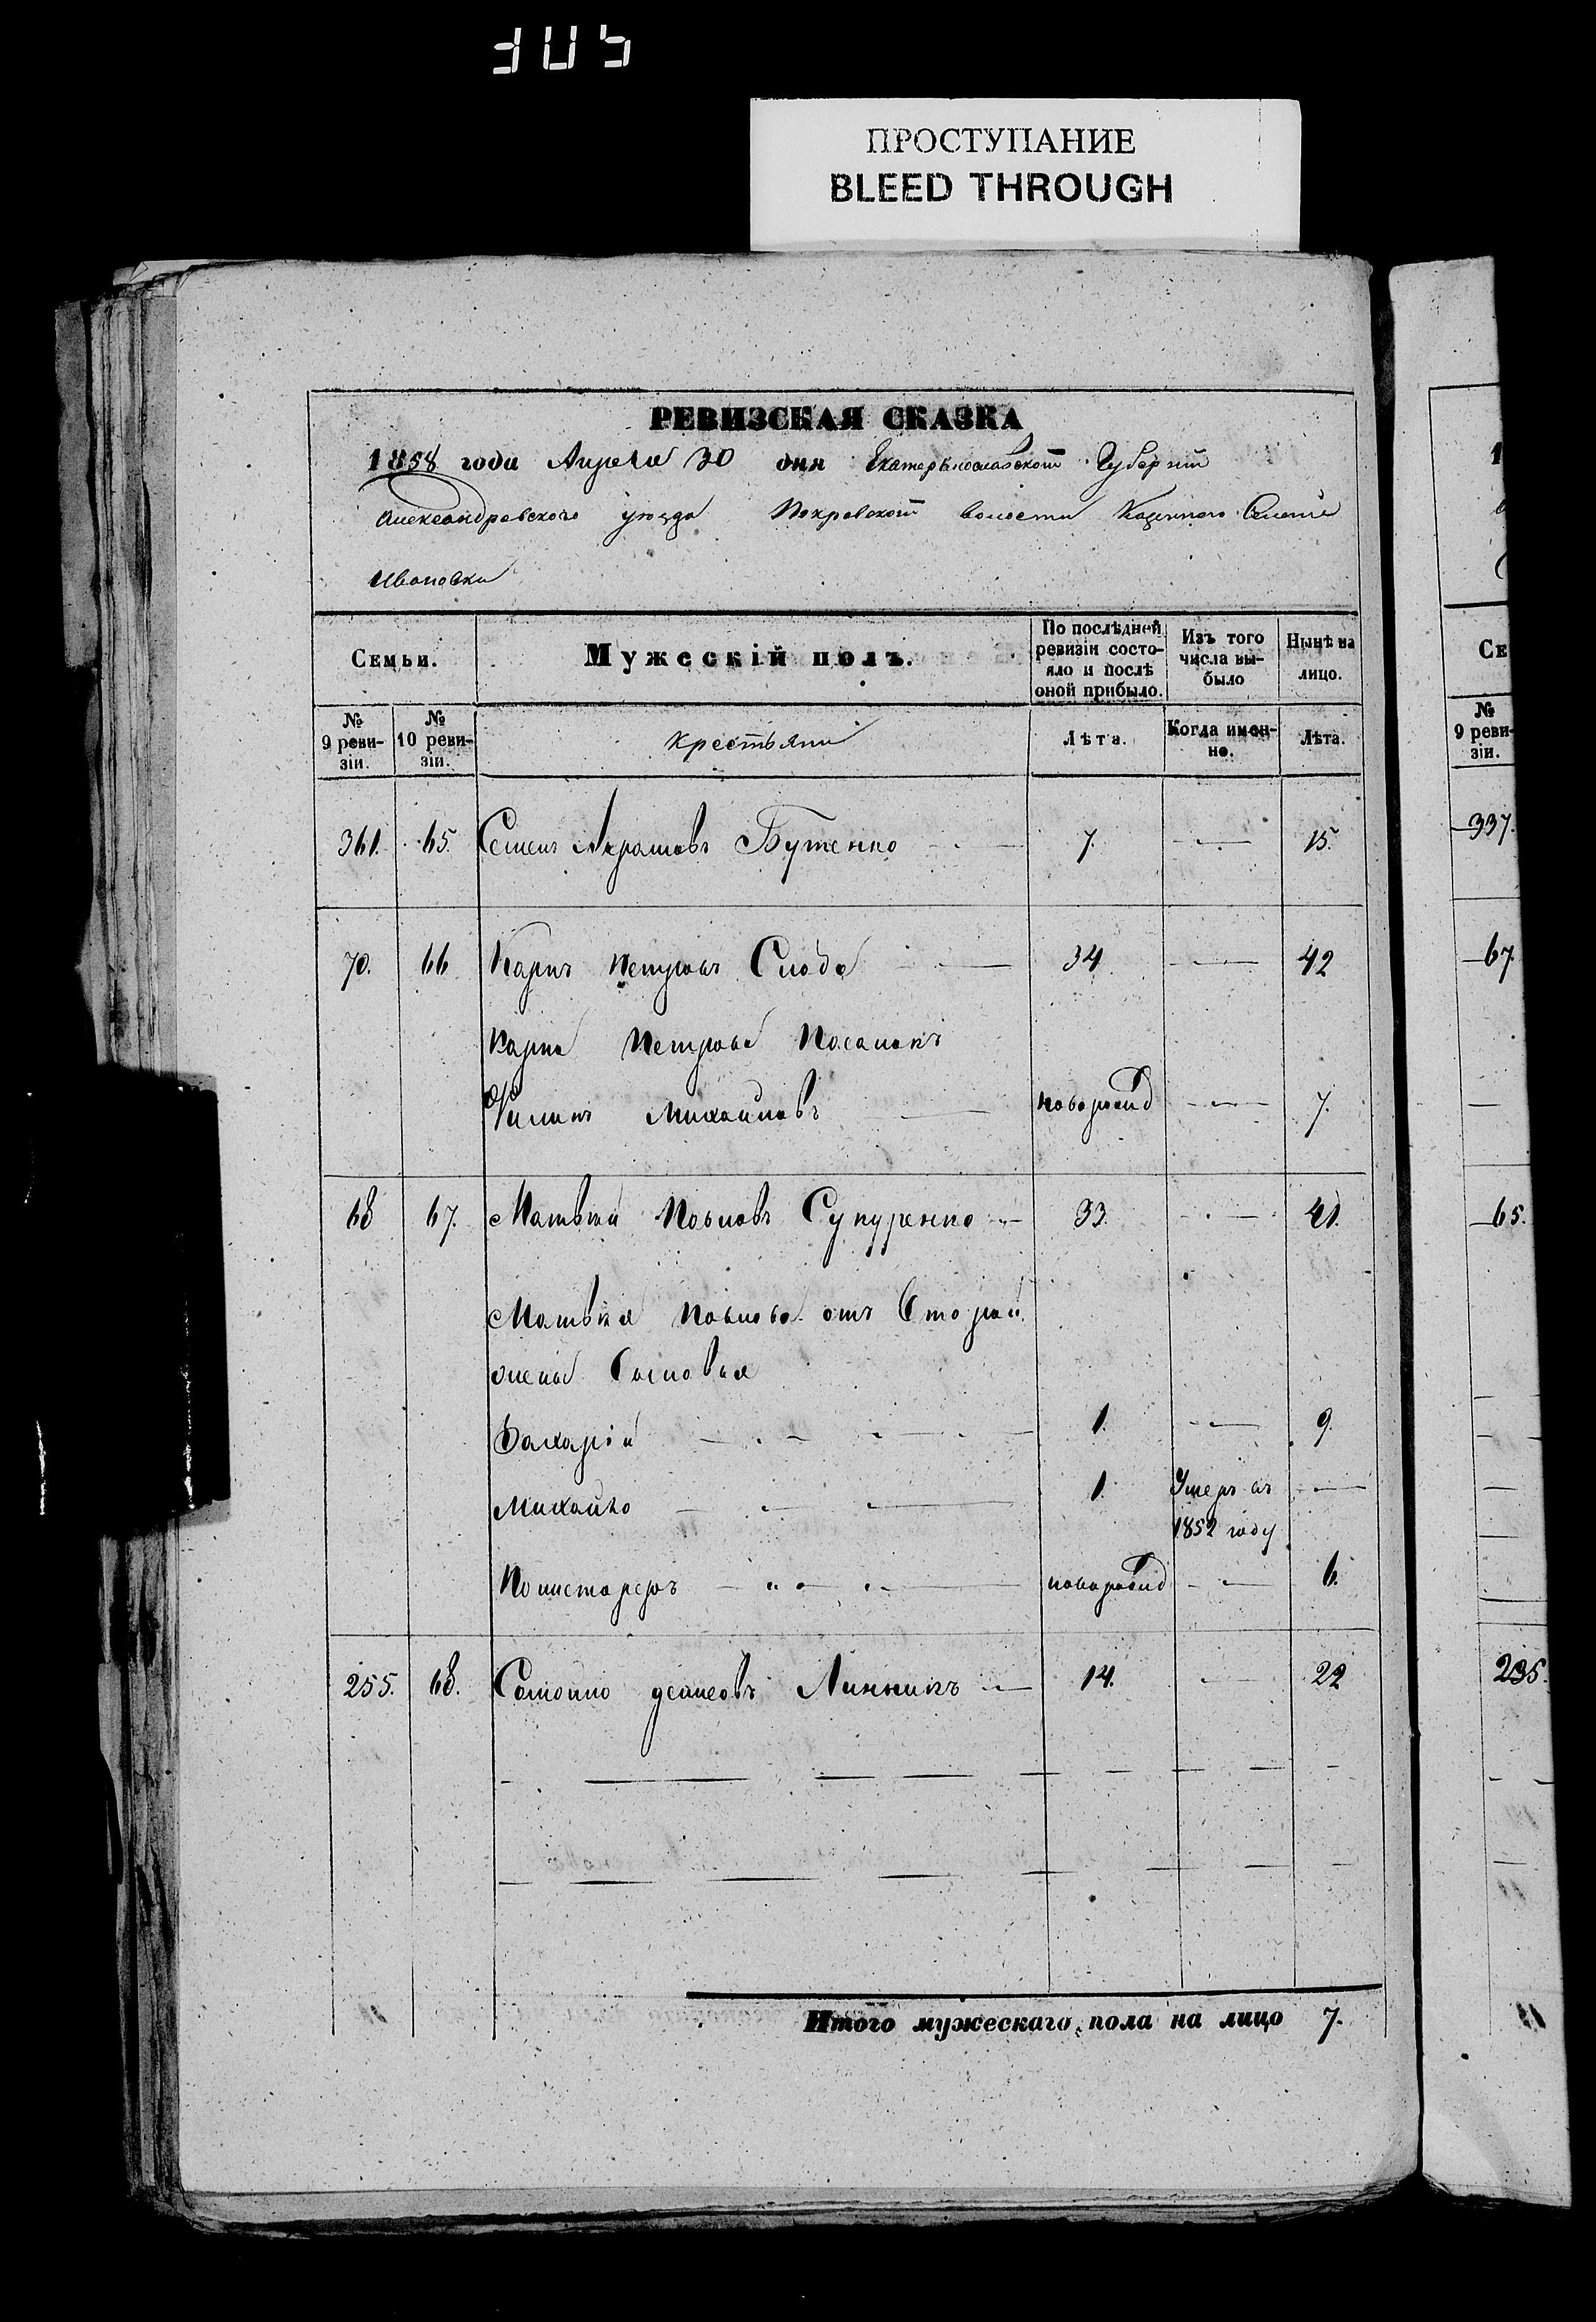 305
ПРОСТУПАНИЕ
BLEED THROUGH
РЕВИЗСКАЯ СКАЗКА
1858 года Апреля 30 дня Екатеринославской Губернии
Александровского уезда Покровской волости Казенного Селения
Ивановки
Семьи. Мужескій полъ. По послѣдней ревизіи состояло и послѣ оной прибыло. Изъ того числа выбыло Нынѣ на лицо.
№ 9 ревизіи. № 10 ревизіи. Крестьяни Лѣта. Когда именно. Лѣта.
361. 65. Семен Бутенко 7. 15.
70. 66 Карпъ Петровъ 34 42
Карпа Петрова
Филипъ Михайловъ новорожд 7.
68 67. Матвѣй Павловъ 33. 41.
Матвѣя Павлова отъ Второй
жены Сыновья
Захарій 1. 9.
Михайло 1. Умеръ въ
1852 году
новорожд 6.
255. 68. Самойло Линникъ 14. 22
Итого мужескаго пола на лицо 7.
1
Се
№
9 ревизіи.
337.
67.
65.
235.